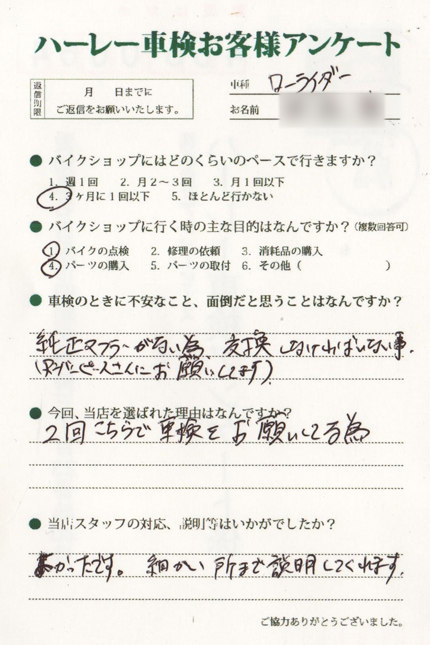 ハーレー車検お客様アンケート
返信期限
月 日までに
ご返信をお願いいたします。
車種 ローライダー
お名前
● バイクショップにはどのくらいのペースで行きますか？
1. 週1回 2. 月2〜3回 3. 月1回以下
4. 3ヶ月に1回以下 5. ほとんど行かない
● バイクショップに行く時の主な目的はなんですか？(複数回答可)
1. バイクの点検 2. 修理の依頼 3. 消耗品の購入
4. パーツの購入 5. パーツの取付 6. その他 ( )
● 車検のときに不安なこと、面倒だと思うことはなんですか？
純正マフラーがない為、交換しなければいけない事.
お願いしてます)
● 今回、当店を選ばれた理由はなんですか？
2回こちらで車検をお願いしてる為
● 当店スタッフの対応、説明等はいかがでしたか？
よかったです。細かい所まで説明してくれます.
ご協力ありがとうございました。